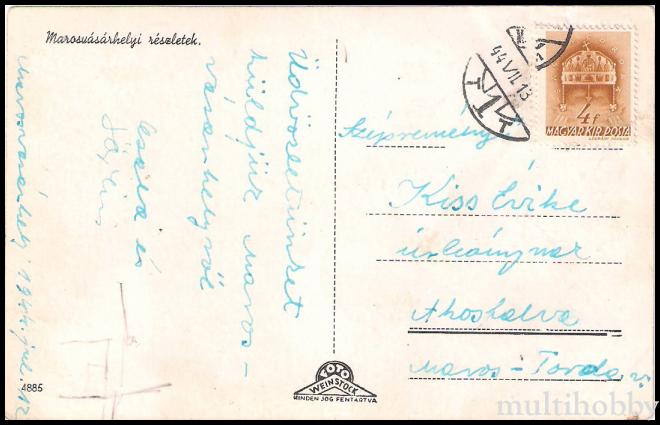 Marosvásárhelyi részletek.
Üdvözletünket
küldjük Maros-
vásárhelyről
Csaba és
Marosvásárhely 1944. jul. 12
44 VII. 13
4f
MAGYAR KIR. POSTA
Kiss Évike
úrleánynak
Ákosfalva
Maros-Torda v.
FOTO
WEINSTOCK
MINDEN JOG FENTARTVA
4885
multihobby